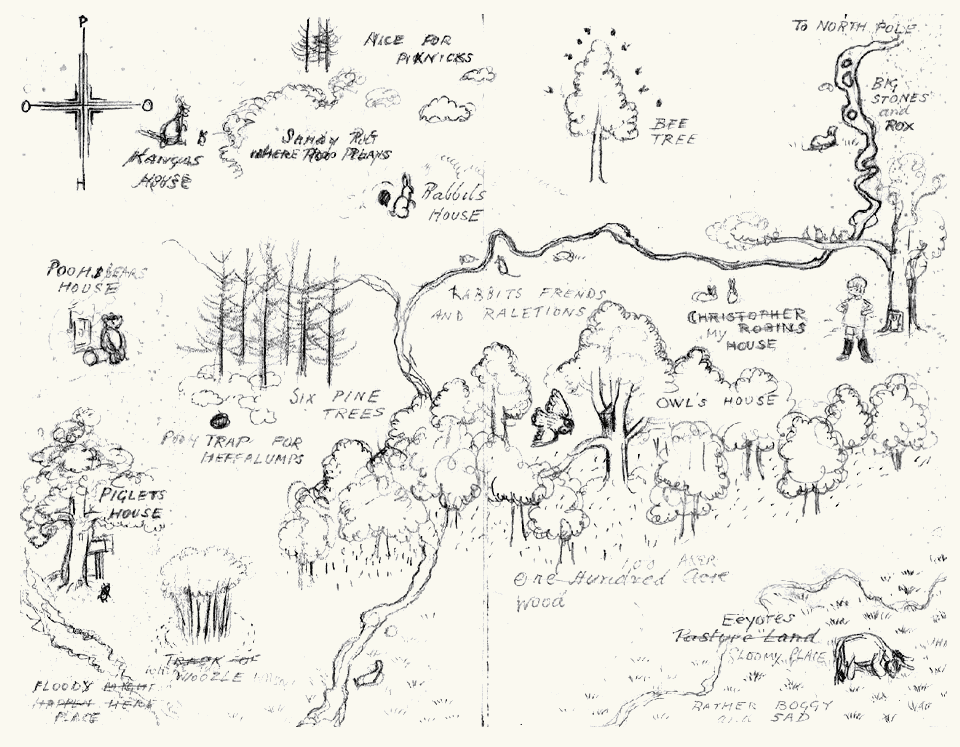 P
NICE FOR
PIKNICKS
To NORTH POLE
BIG
STONES
and
ROX
BEE
TREE
SANDY PIT
WHERE ROO PLAYS
KANGAS
HOUSE
H
Rabbits
HOUSE
POOH BEARS
HOUSE
RABBITS FRENDS
AND RALETIONS
CHRISTOPHER
MY ROBINS
HOUSE
SIX PINE
TREES
OWL'S HOUSE
POOH TRAP FOR
HEFFALUMPS
PIGLETS
HOUSE
100 AKER
One Hundred Acre
Wood
Eeyores
Pasture Land
GLOOMY PLACE
WOOZLE
FLOODY MIGHT
HAPPEN HERE
PLACE
RATHER BOGGY
and SAD